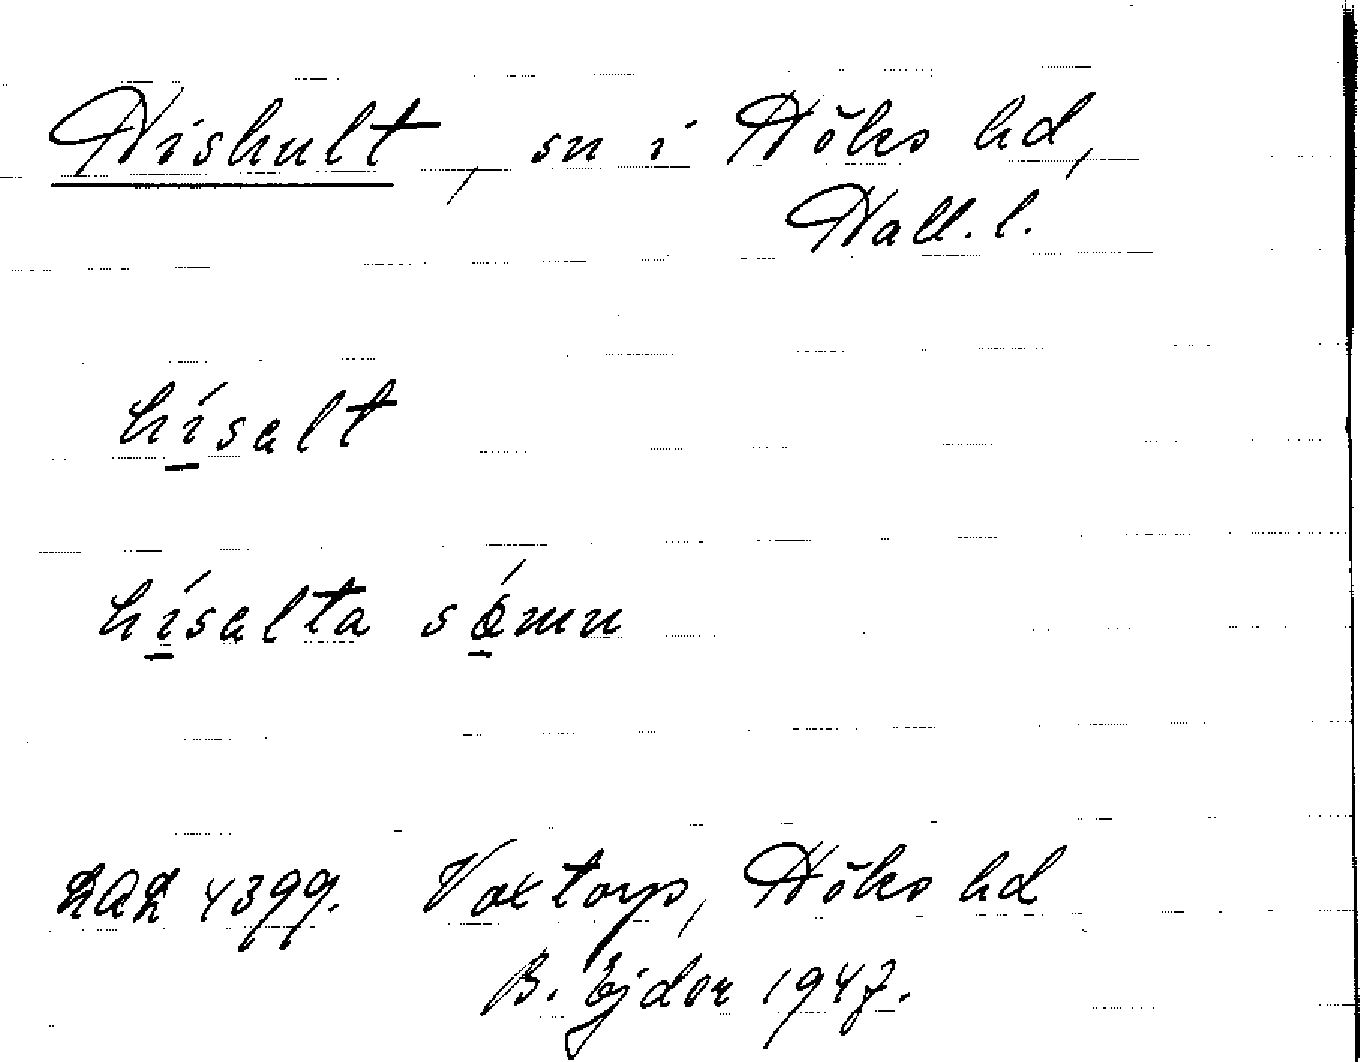 Hishult, sn i Höks hd,
Hall. l.
hísalt
hísalta sómn
LAL 4399. Voxtorp, Höks hd
B. Ejder 1947.